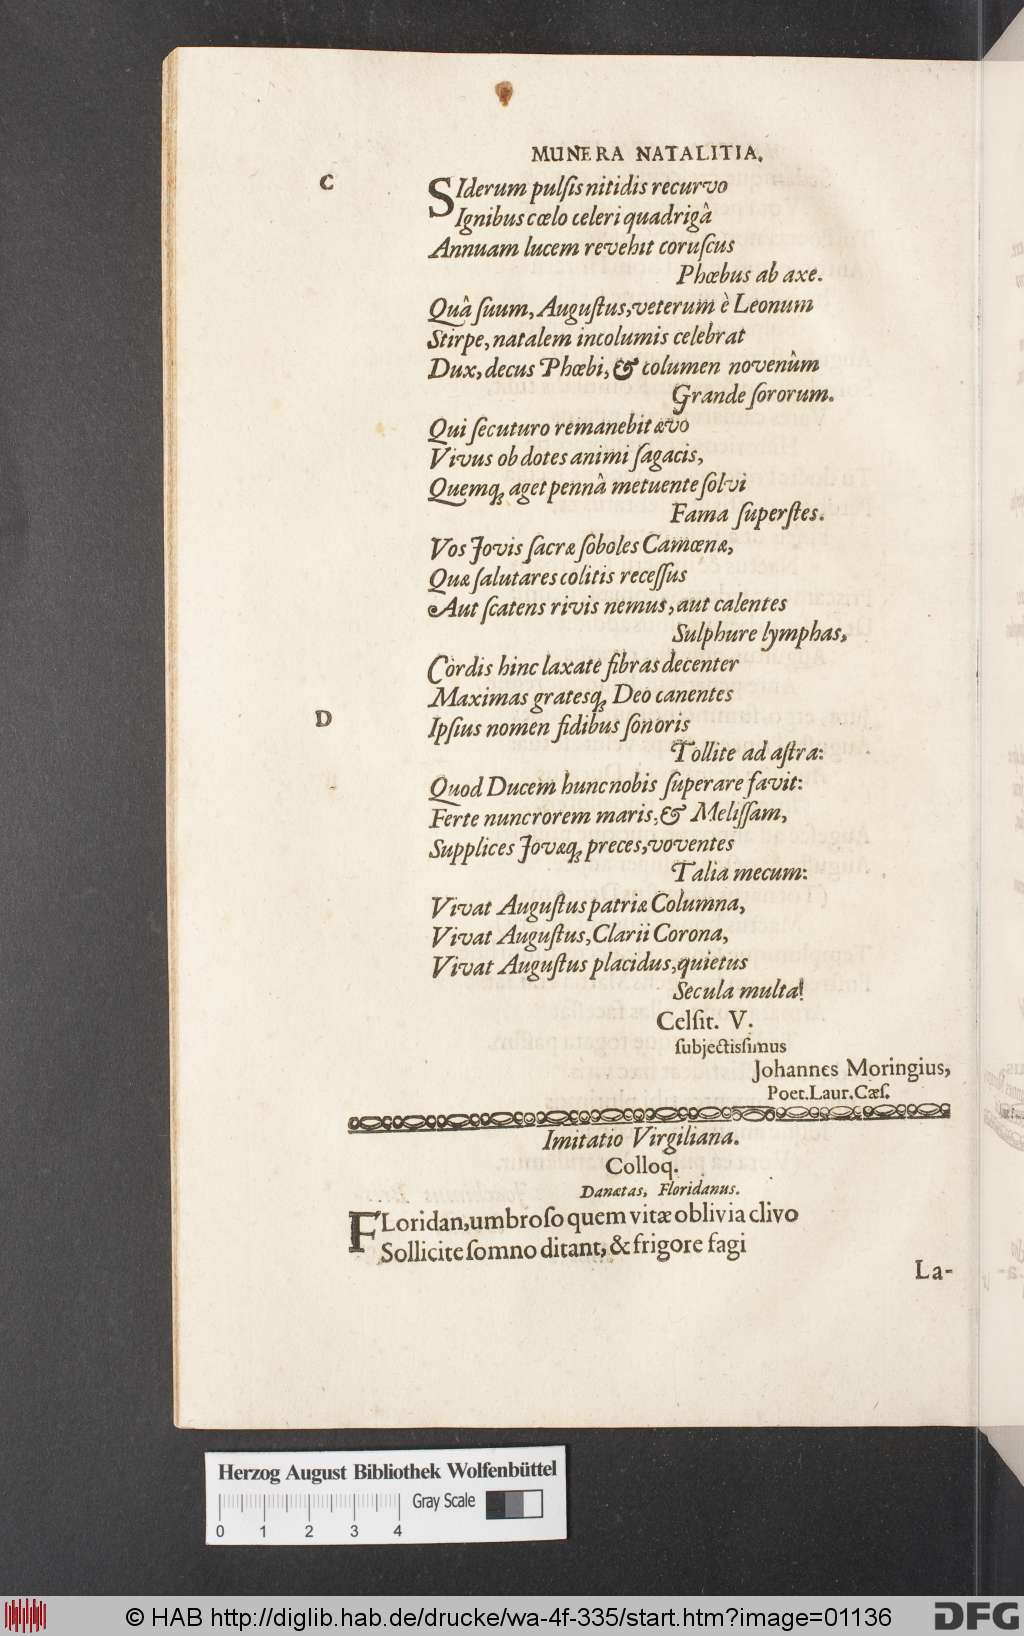 MUNERA NATALITIA.
C
SIderum pulsis nitidis recurvo
Ignibus cœlo celeri quadrigâ
Annuam lucem revehit coruscus
Phœbus ab axe.
Quâ suum, Augustus, veterum è Leonum
Stirpe, natalem incolumis celebrat
Dux, decus Phœbi, & columen novenûm
Grande sororum.
Qui secuturo remanebit ævo
Vivus ob dotes animi sagacis,
Quemq; aget pennâ metuente solvi
Fama superstes.
Vos Jovis sacræ soboles Camœnæ,
Quæ salutares colitis recessus
Aut scatens rivis nemus, aut calentes
Sulphure lymphas,
Cordis hinc laxate fibras decenter
Maximas gratesq; Deo canentes
D
Ipsius nomen fidibus sonoris
Tollite ad astra:
Quod Ducem hunc nobis superare favit:
Ferte nunc rorem maris, & Melissam,
Supplices Jovæq; preces, voventes
Talia mecum:
Vivat Augustus patriæ Columna,
Vivat Augustus, Clarii Corona,
Vivat Augustus placidus, quietus
Secula multa!
Celsit. V.
subjectissimus
Johannes Moringius,
Poet. Laur. Cæs.
Imitatio Virgiliana.
Colloq.
Danætas, Floridanus.
FLoridan, umbroso quem vitæ oblivia clivo
Sollicite somno ditant, & frigore fagi
La-
Herzog August Bibliothek Wolfenbüttel
Gray Scale
0 1 2 3 4
© HAB http://diglib.hab.de/drucke/wa-4f-335/start.htm?image=01136
DFG